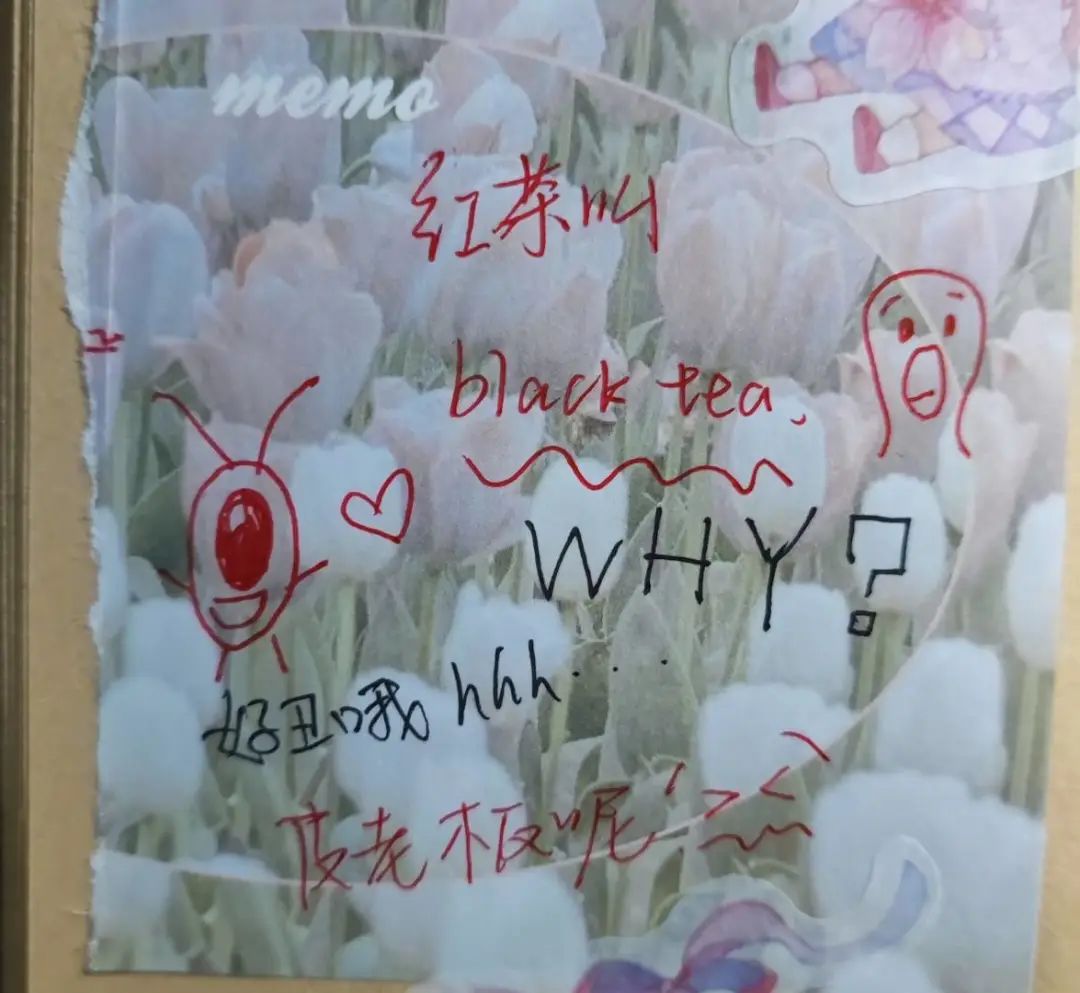 memo
红茶叫
black tea.
WHY?
好丑哦 hhh...
皮老板呢